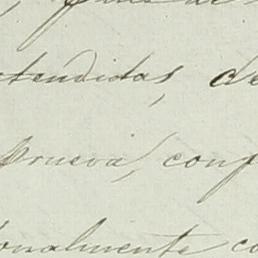 tendidas, de
prueva, conf
onalmente co